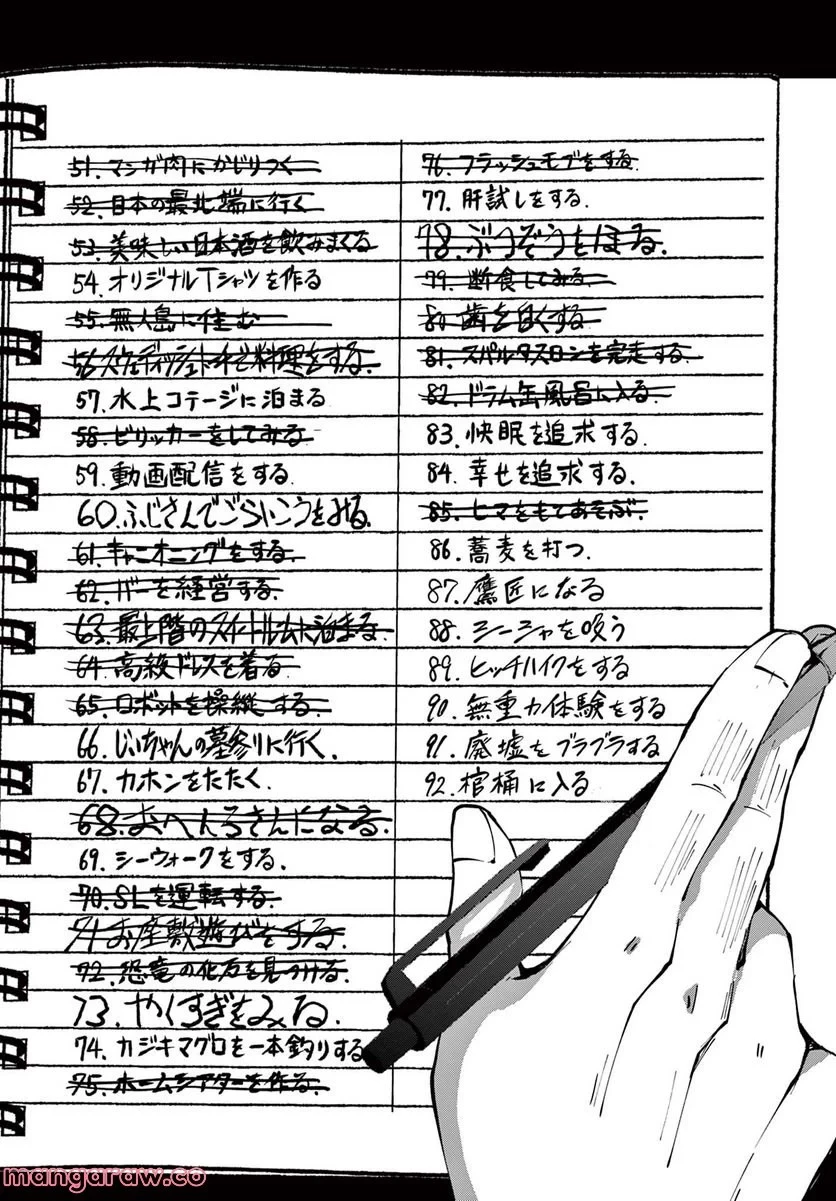 51. マンガ肉にかじりつく
52. 日本の最北端に行く
53. 美味しい日本酒を飲みまくる
54. オリジナルTシャツを作る
55. 無人島に住む
56. スウェーディッシュトーチで料理をする.
57. 水上コテージに泊まる
58. ビリッカーをしてみる
59. 動画配信をする.
60. ふじさんでごらいこうをみる.
61. キャニオニングをする.
62. バーを経営する.
63. 最上階のスイートルームに泊まる.
64. 高級ドレスを着る
65. ロボットを操縦する.
66. じいちゃんの墓参りに行く.
67. カホンをたたく.
68. おへんろさんになる.
69. シーウォークをする.
70. SLを運転する.
71. お座敷遊びをする.
72. 恐竜の化石を見つける.
73. やくすぎをみる.
74. カジキマグロを一本釣りする
75. ホームシアターを作る.
76. フラッシュモブをする
77. 肝試しをする.
78. ぶつぞうをほる.
79. 断食してみる.
80. 歯を白くする
81. スパルタスロンを完走する.
82. ドラム缶風呂に入る.
83. 快眠を追求する.
84. 幸せを追求する.
85. ヒマをもてあそぶ.
86. 蕎麦を打つ.
87. 鷹匠になる
88. シーシャを吸う
89. ヒッチハイクをする
90. 無重力体験をする
91. 廃墟をブラブラする
92. 棺桶に入る
mangaraw.co